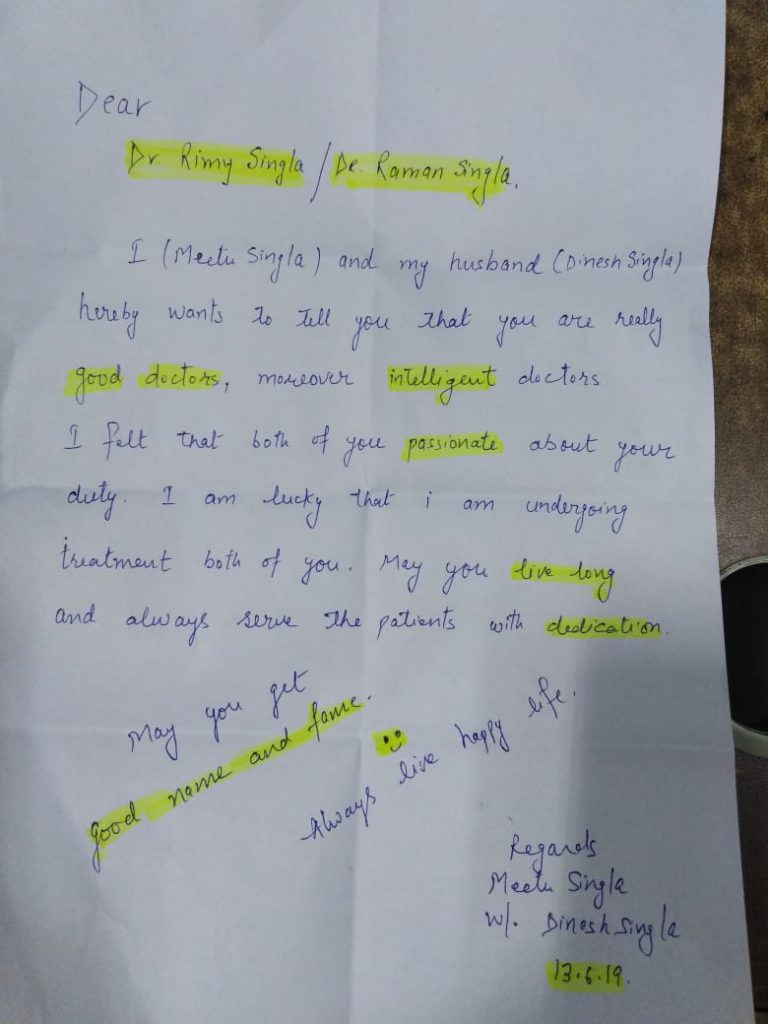 Dear
Dr Rimy Singla / De. Raman Singla.
I (Meetu Singla) and my husband (Dinesh Singla)
hereby wants to tell you that you are really
good doctors, moreover intelligent doctors
I felt that both of you passionate about your
duty. I am lucky that i am undergoing
treatment both of you. May you live long
and always serve the patients with dedication.
May you get
good name and fame.
Always live happy life.
Regards
Meetu Singla
W/. Dinesh Singla
13.6.19.